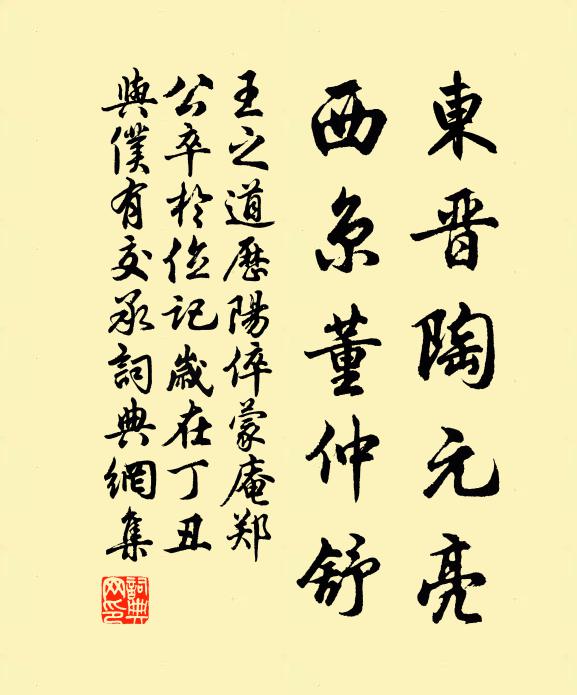 東晋陶元亮
西京董仲舒
王之道歷陽倅蒙庵郑
公卒於位記歲在丁丑
與僕有交承詞典網集
詞典网印